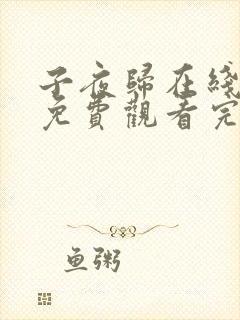 子夜歸在綫
免費觀看完
鱼粥